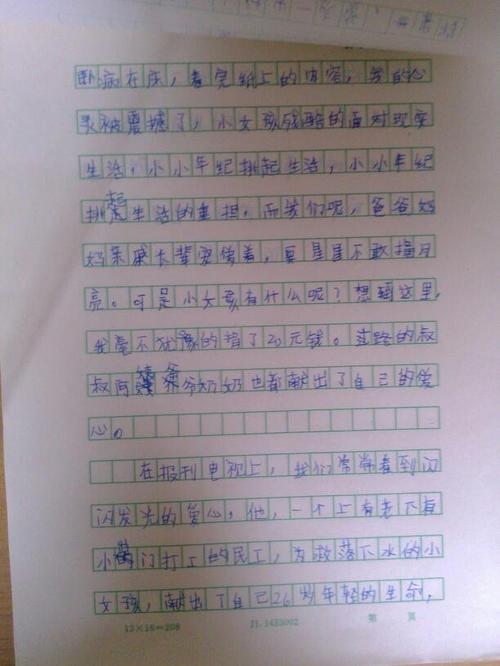 卧病在床，看完纸上的内容，我的心
灵被震撼了，小女孩残酷的面对现实
生活，小小年纪挑起生活，小小年纪
挑起生活的重担。而我们呢，爸爸妈
妈亲戚长辈宠着，要星星不敢摘月
亮。可是小女孩有什么呢？想到这里，
我毫不犹豫的捐了20元钱。过路的叔
叔阿姨爷爷奶奶也都献出了自己的爱
心。
在报刊电视上，我们常常看到闪
闪发光的爱心，他，一个上有老下有
小出门打工的民工，为救落下水的小
女孩，献出了自己26岁年轻的生命，
13×16=208 J1.1433002 第 页